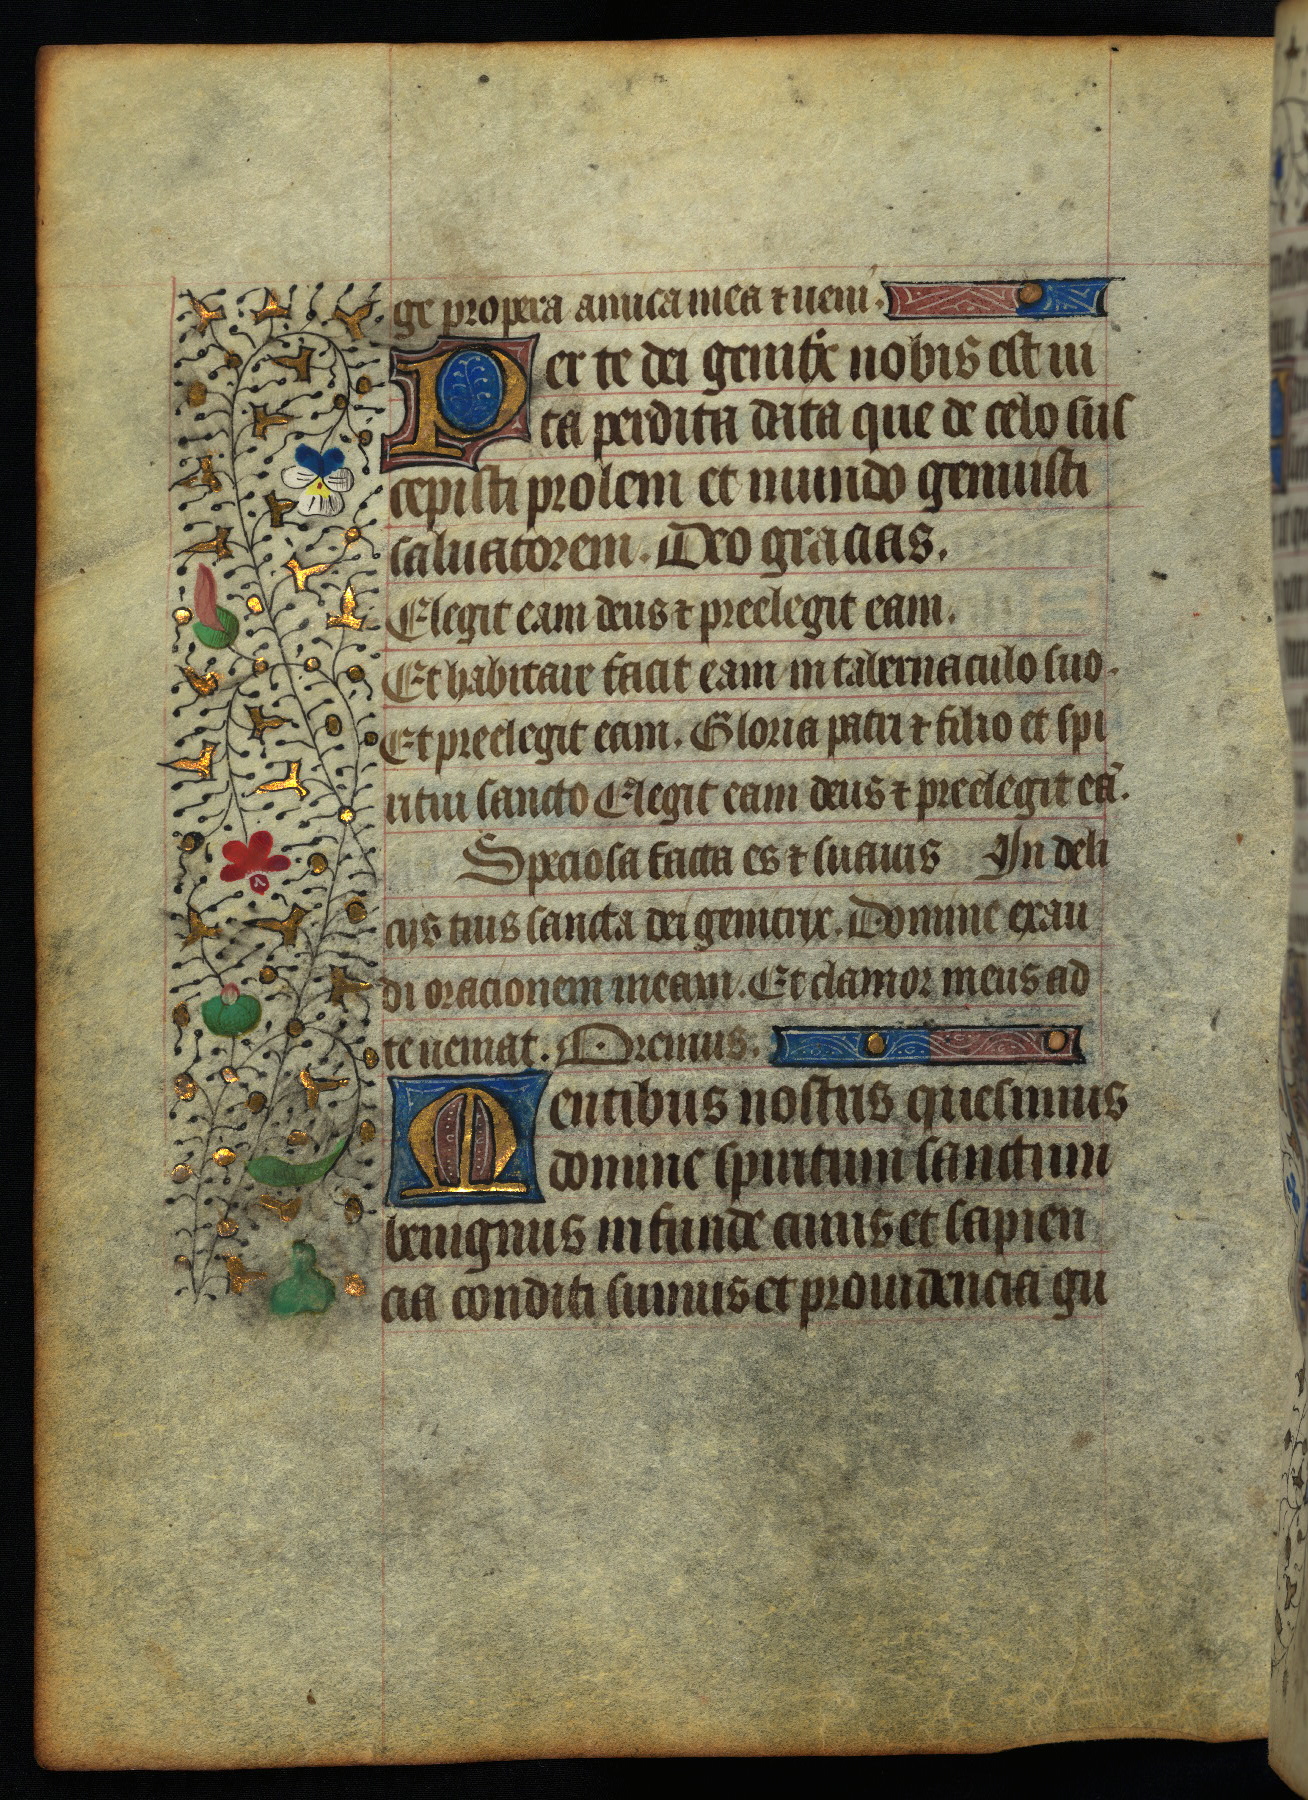 ge propera amica mea ⁊ ueni.
Per te dei genitx̄ nobis est ui
ta perdita data que de celo sus
cepisti prolem et mundo genuisti
saluatorem. Deo gracias.
Elegit eam deus ⁊ preelegit eam.
Et habitare facit eam in tabernaculo suo.
Et preelegit eam. Gloria patri ⁊ filio et spi
ritui sancto Elegit eam deus ⁊ preelegit eā.
Speciosa facta es ⁊ suauis In deli
cijs tuis sancta dei genitrix. Domine exau
di oracionem meam. Et clamor meus ad
te ueniat. Oremus.
Mentibus nostris quesumus
domine spiritum sanctum
benignus infunde cuius et sapien
cia conditi sumus et prouidencia gu